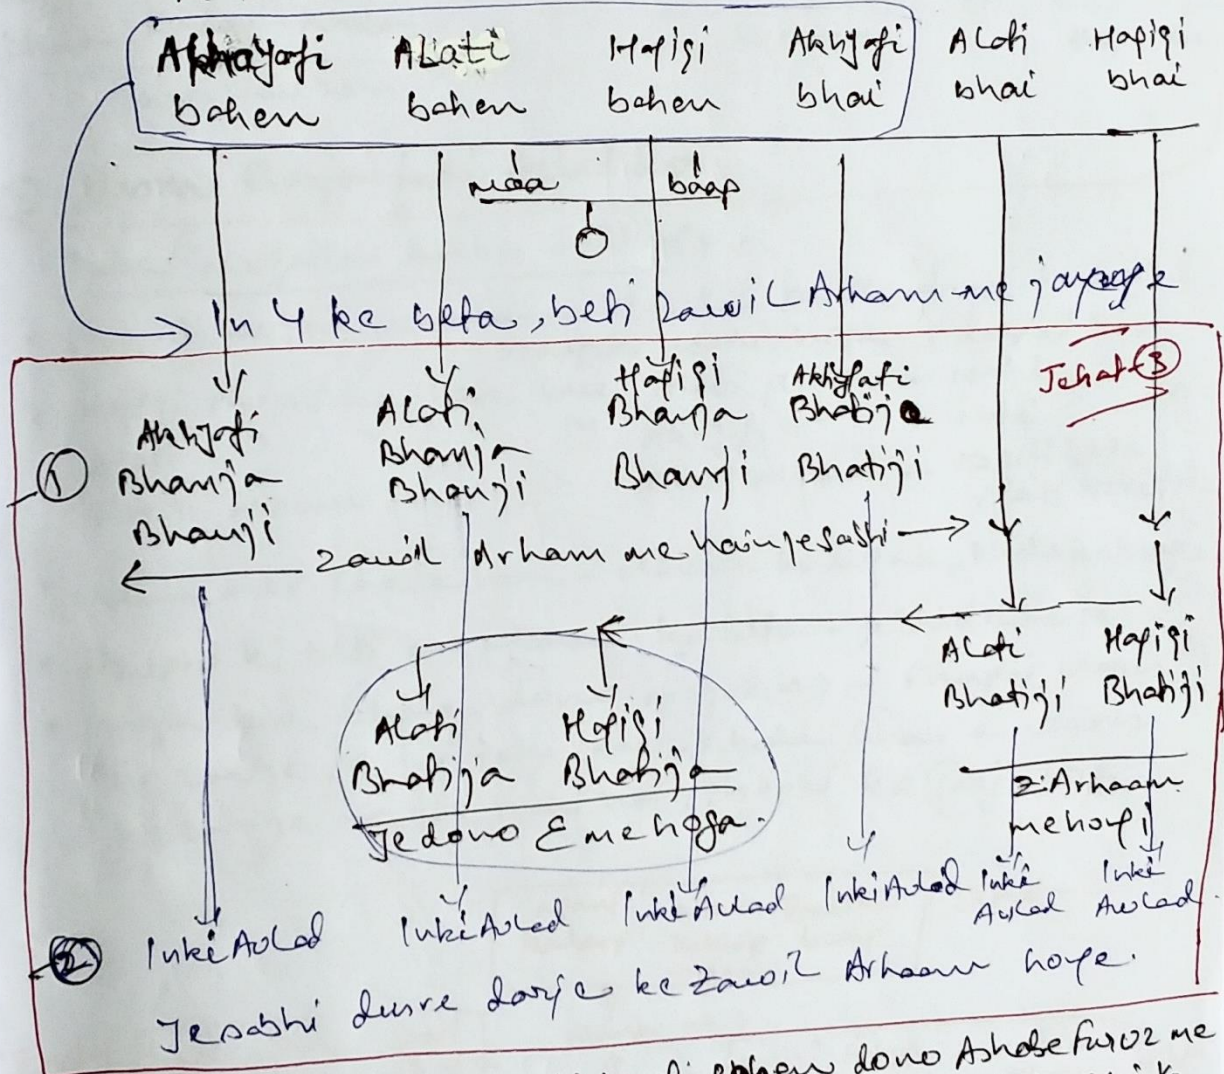 Akhyafi bahen
ALati bahen
Haqiqi bahen
Akhyafi bhai
ALati bhai
Haqiqi bhai
maa
baap
In 4 ke beta, beti zawil Arham me jayenge
Jehat-3
1
Akhyafi Bhanja Bhanji
ALati Bhanja Bhanji
Haqiqi Bhanja Bhanji
Akhyafi Bhatija Bhatiji
zawil Arham me hain ye sabhi
ALati Bhatiji
Haqiqi Bhatiji
ALati Bhatija
Haqiqi Bhatija
Ye dono E me hoga.
Z.Arhaam me hongi
2
Inki AuLad
Inki AuLad
Inki AuLad
Inki AuLad
Inki AuLad
Inki AwLad.
Ye sabhi dusre darje ke zawil Arhaam honge.
bahen dono Ashabe furoz me